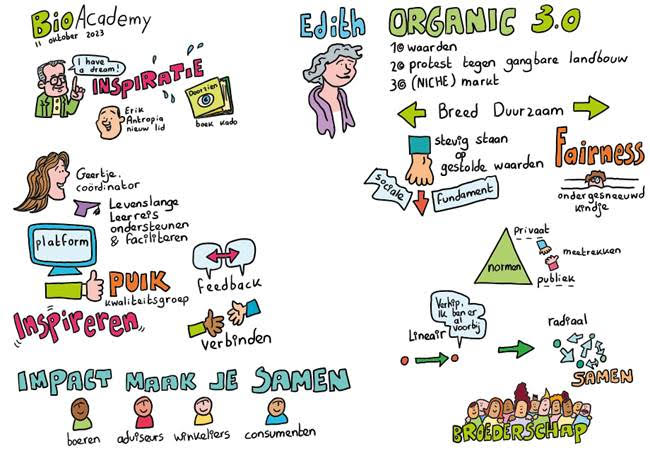 BioAcademy
11 oktober 2023
I have
a dream!
INSPIRATIE
Erik
Antropia
nieuw lid
Doorzien
boek kado
Geertje.
coördinator
Levenslange
Leerreis
ondersteunen
& faciliteren
platform
PUIK
kwaliteitsgroep
feedback
Inspireren
verbinden
IMPACT MAAK JE SAMEN
boeren
adviseurs
winkeliers
consumenten
Edith
ORGANIC 3.0
1@ waarden
2@ protest tegen gangbare landbouw
3@ (NICHE) markt
Breed Duurzaam
stevig staan
op
gestolde waarden
sociale
fundament
Fairness
ondergesneeuwd
kindje
Privaat
normen
meetrekken
publiek
Verhip,
Ik ben er
al
voorbij
Lineair
radiaal
SAMEN
BROEDERSCHAP